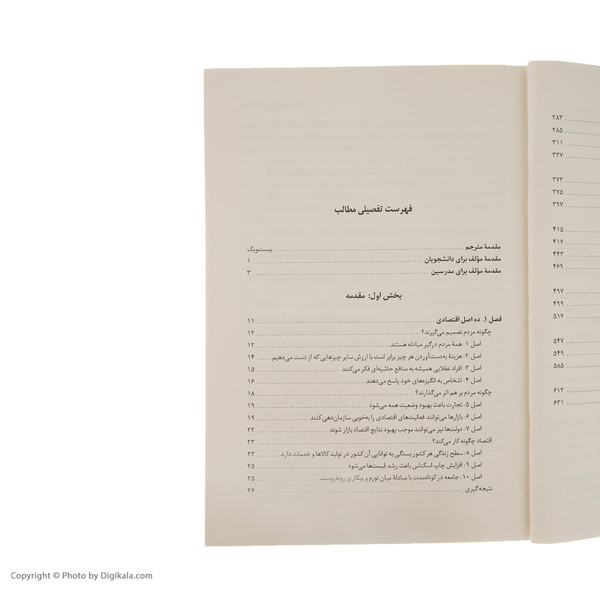 فهرست تفصیلی مطالب
مقدمهٔ مترجم ..... بیست‌ویک
مقدمهٔ مؤلف برای دانشجویان ..... ۱
مقدمهٔ مؤلف برای مدرسین ..... ۳
بخش اول: مقدمه
فصل ۱. ده اصل اقتصادی ..... ۱۱
چگونه مردم تصمیم می‌گیرند؟ ..... ۱۲
اصل ۱: همهٔ مردم درگیر مبادله هستند ..... ۱۲
اصل ۲: هزینهٔ به‌دست‌آوردن هر چیز برابر است با ارزش سایر چیزهایی‌که از دست می‌دهیم. ۱۴
اصل ۳: افراد عقلایی همیشه به منافع حاشیه‌ای فکر می‌کنند ..... ۱۵
اصل ۴: اشخاص به انگیزه‌های خود پاسخ می‌دهند ..... ۱۶
چگونه مردم بر هم اثر می‌گذارند؟ ..... ۱۸
اصل ۵: تجارت باعث بهبود وضعیت همه می‌شود ..... ۱۹
اصل ۶: بازارها می‌توانند فعالیت‌های اقتصادی را به‌خوبی سازمان‌دهی‌کنند ..... ۱۹
اصل ۷: دولت‌ها نیز می‌توانند موجب بهبود نتایج اقتصاد بازار شوند ..... ۲۲
اقتصاد چگونه‌کار می‌کند؟ ..... ۲۳
اصل ۸: سطح زندگی هر کشور بستگی به توانایی آن کشور در تولید کالاها و خدمات دارد. ۲۳
اصل ۹: افزایش چاپ اسکناس باعث رشد قیمت‌ها می‌شود ..... ۲۵
اصل ۱۰: جامعه در کوتاه‌مدت با مبادلهٔ میان تورم و بیکاری روبه‌روست. ..... ۲۵
نتیجه‌گیری ..... ۲۶
۲۸۳
۲۸۵
۳۱۱
۳۳۷
۳۷۳
۳۷۵
۳۹۷
۴۱۵
۴۱۷
۴۴۳
۴۶۹
۴۹۷
۴۹۹
۵۱۷
۵۴۷
۵۴۹
۵۸۵
۶۱۳
۶۳۱
Copyright © Photo by Digikala.com